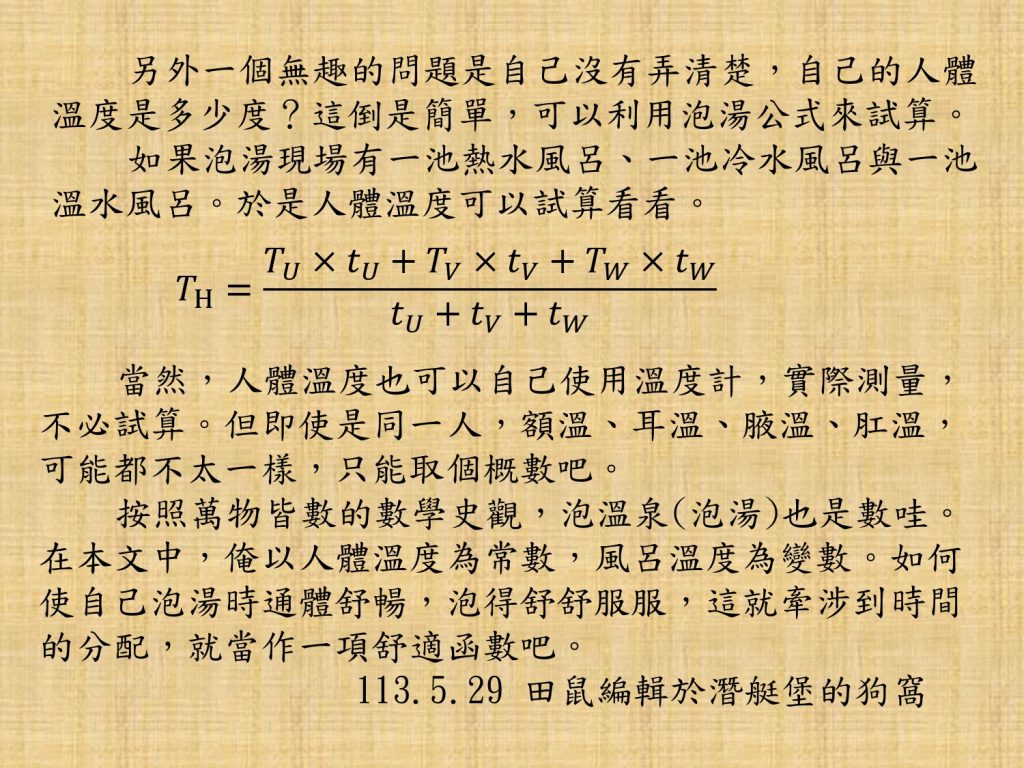 另外一個無趣的問題是自己沒有弄清楚，自己的人體
溫度是多少度？這倒是簡單，可以利用泡湯公式來試算。
如果泡湯現場有一池熱水風呂、一池冷水風呂與一池
溫水風呂。於是人體溫度可以試算看看。
T_H = (T_U × t_U + T_V × t_V + T_W × t_W) / (t_U + t_V + t_W)
當然，人體溫度也可以自己使用溫度計，實際測量，
不必試算。但即使是同一人，額溫、耳溫、腋溫、肛溫，
可能都不太一樣，只能取個概數吧。
按照萬物皆數的數學史觀，泡溫泉(泡湯)也是數哇。
在本文中，俺以人體溫度為常數，風呂溫度為變數。如何
使自己泡湯時通體舒暢，泡得舒舒服服，這就牽涉到時間
的分配，就當作一項舒適函數吧。
113.5.29 田鼠編輯於潛艇堡的狗窩